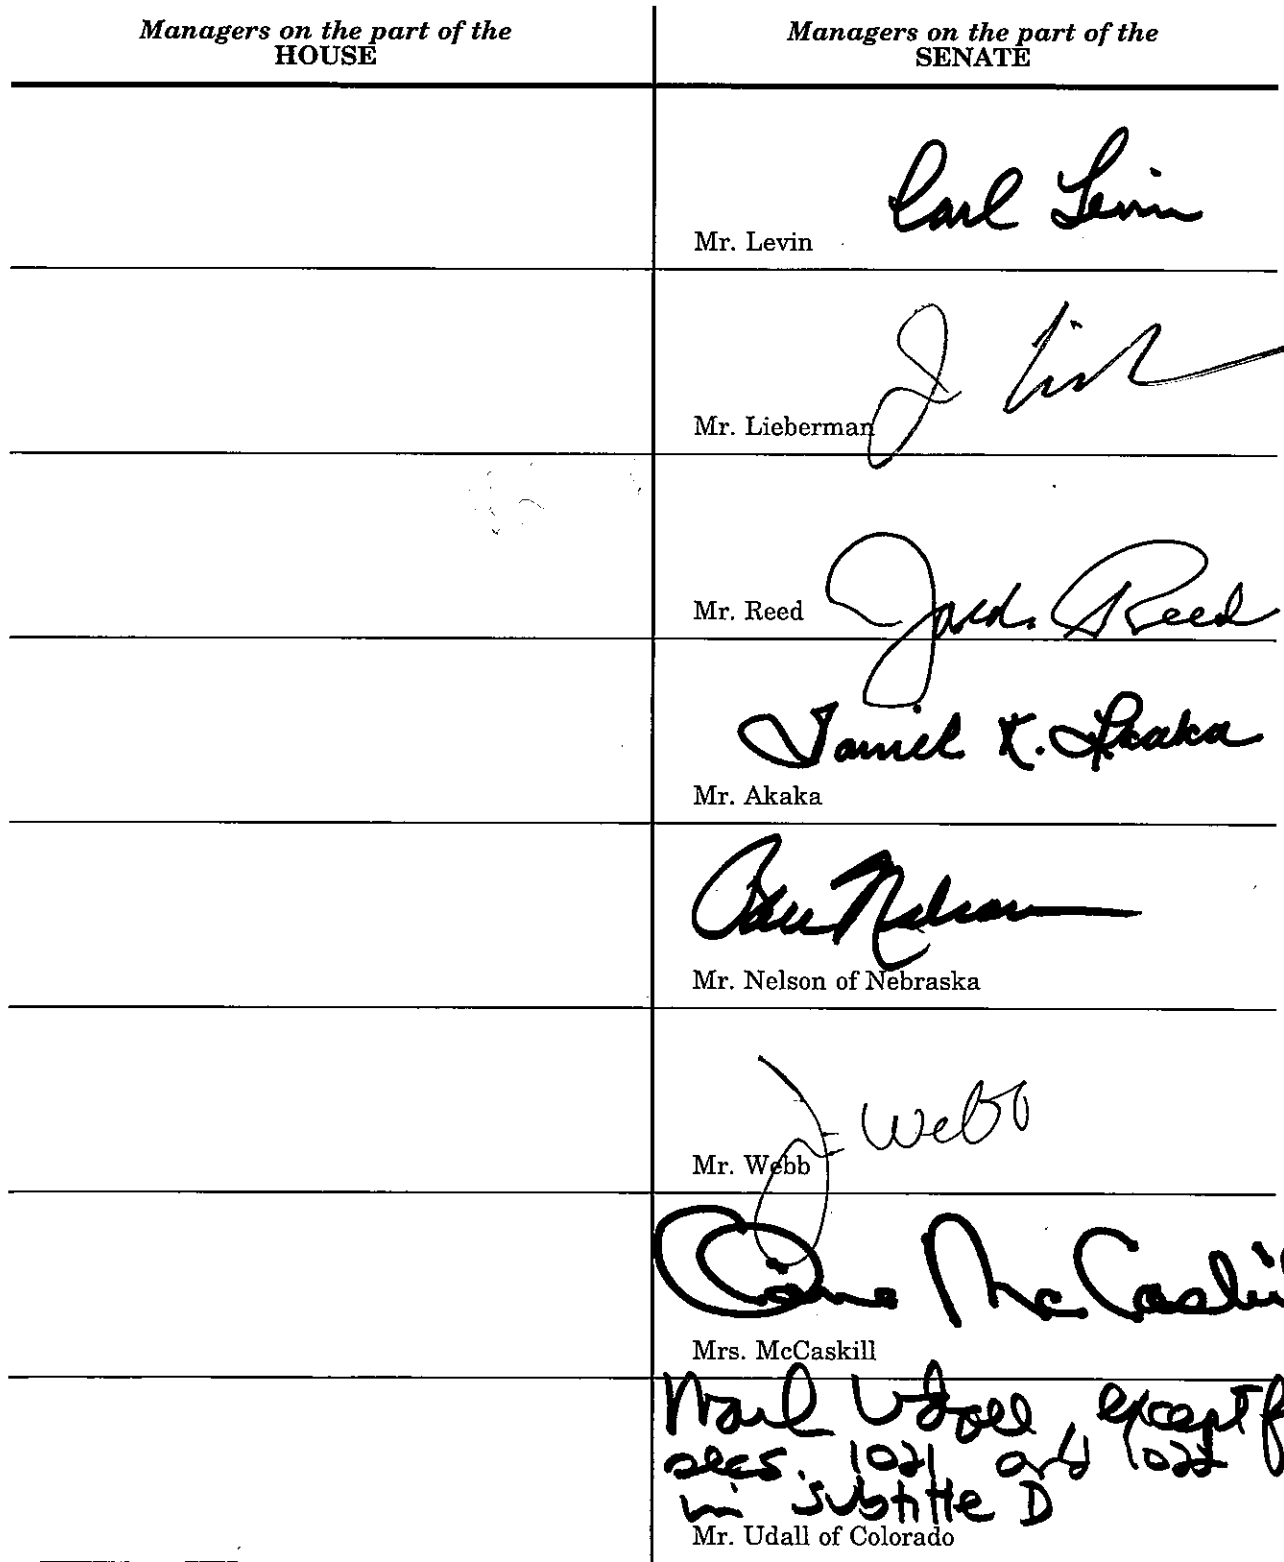 Managers on the part of the
HOUSE
Managers on the part of the
SENATE
Carl Levin
Mr. Levin
Mr. Lieberman
Jack Reed
Mr. Reed
Daniel K. Akaka
Mr. Akaka
Ben Nelson
Mr. Nelson of Nebraska
J Webb
Mr. Webb
Claire McCaski
Mrs. McCaskill
Mark Udall, except f
secs. 1021 and 1022
in subtitle D
Mr. Udall of Colorado